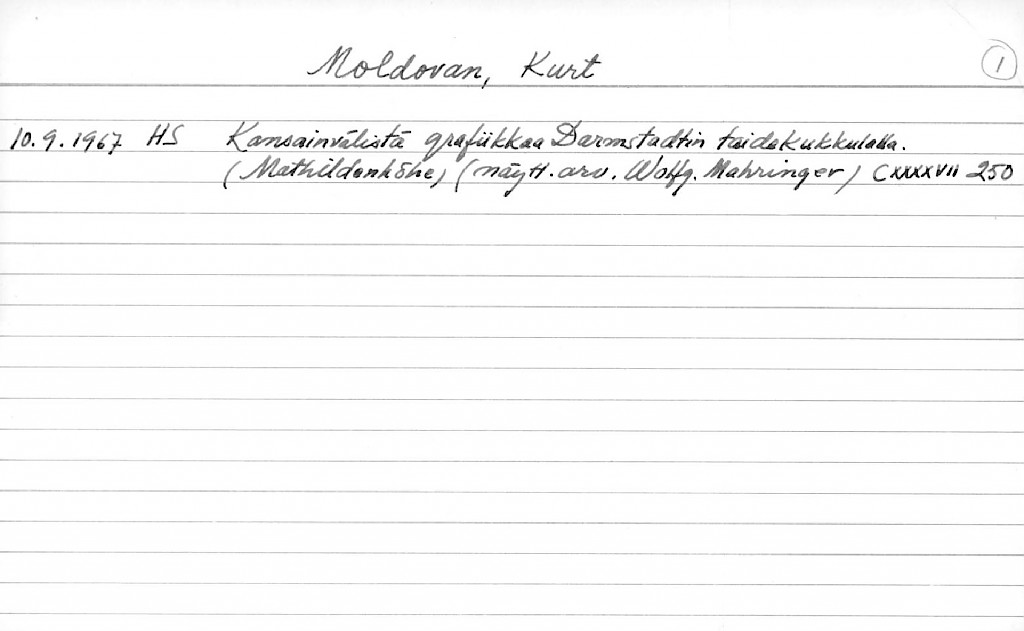 Moldovan, Kurt 1
10.9.1967 HS Kansainvälistä grafiikkaa Darmstadtin taidekukkulalla.
(Mathildenhöhe) (näytt. arv. Wolfg. Mahringer) CXXXXVII 250